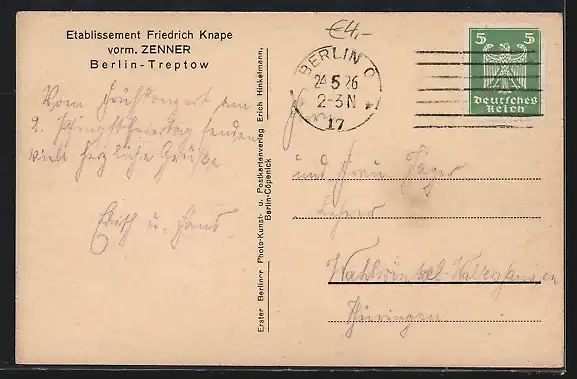 Etablissement Friedrich Knape
vorm. ZENNER
Berlin-Treptow
€4,-
BERLIN O
24.5.26
2-3 N
17
5 5
Deutsches
Reich
Vom Frühkonzert am
2. Pfingstfeiertag senden
viele herzliche Grüße
Edith u. Hans
Erster Berliner Photo-Kunst- u. Postkartenverlag Erich Hinkelmann,
Berlin-Cöpenick
Herrn
und Frau Jäger
Lehrer
Wahlwinkel-Waltershausen
Thüringen